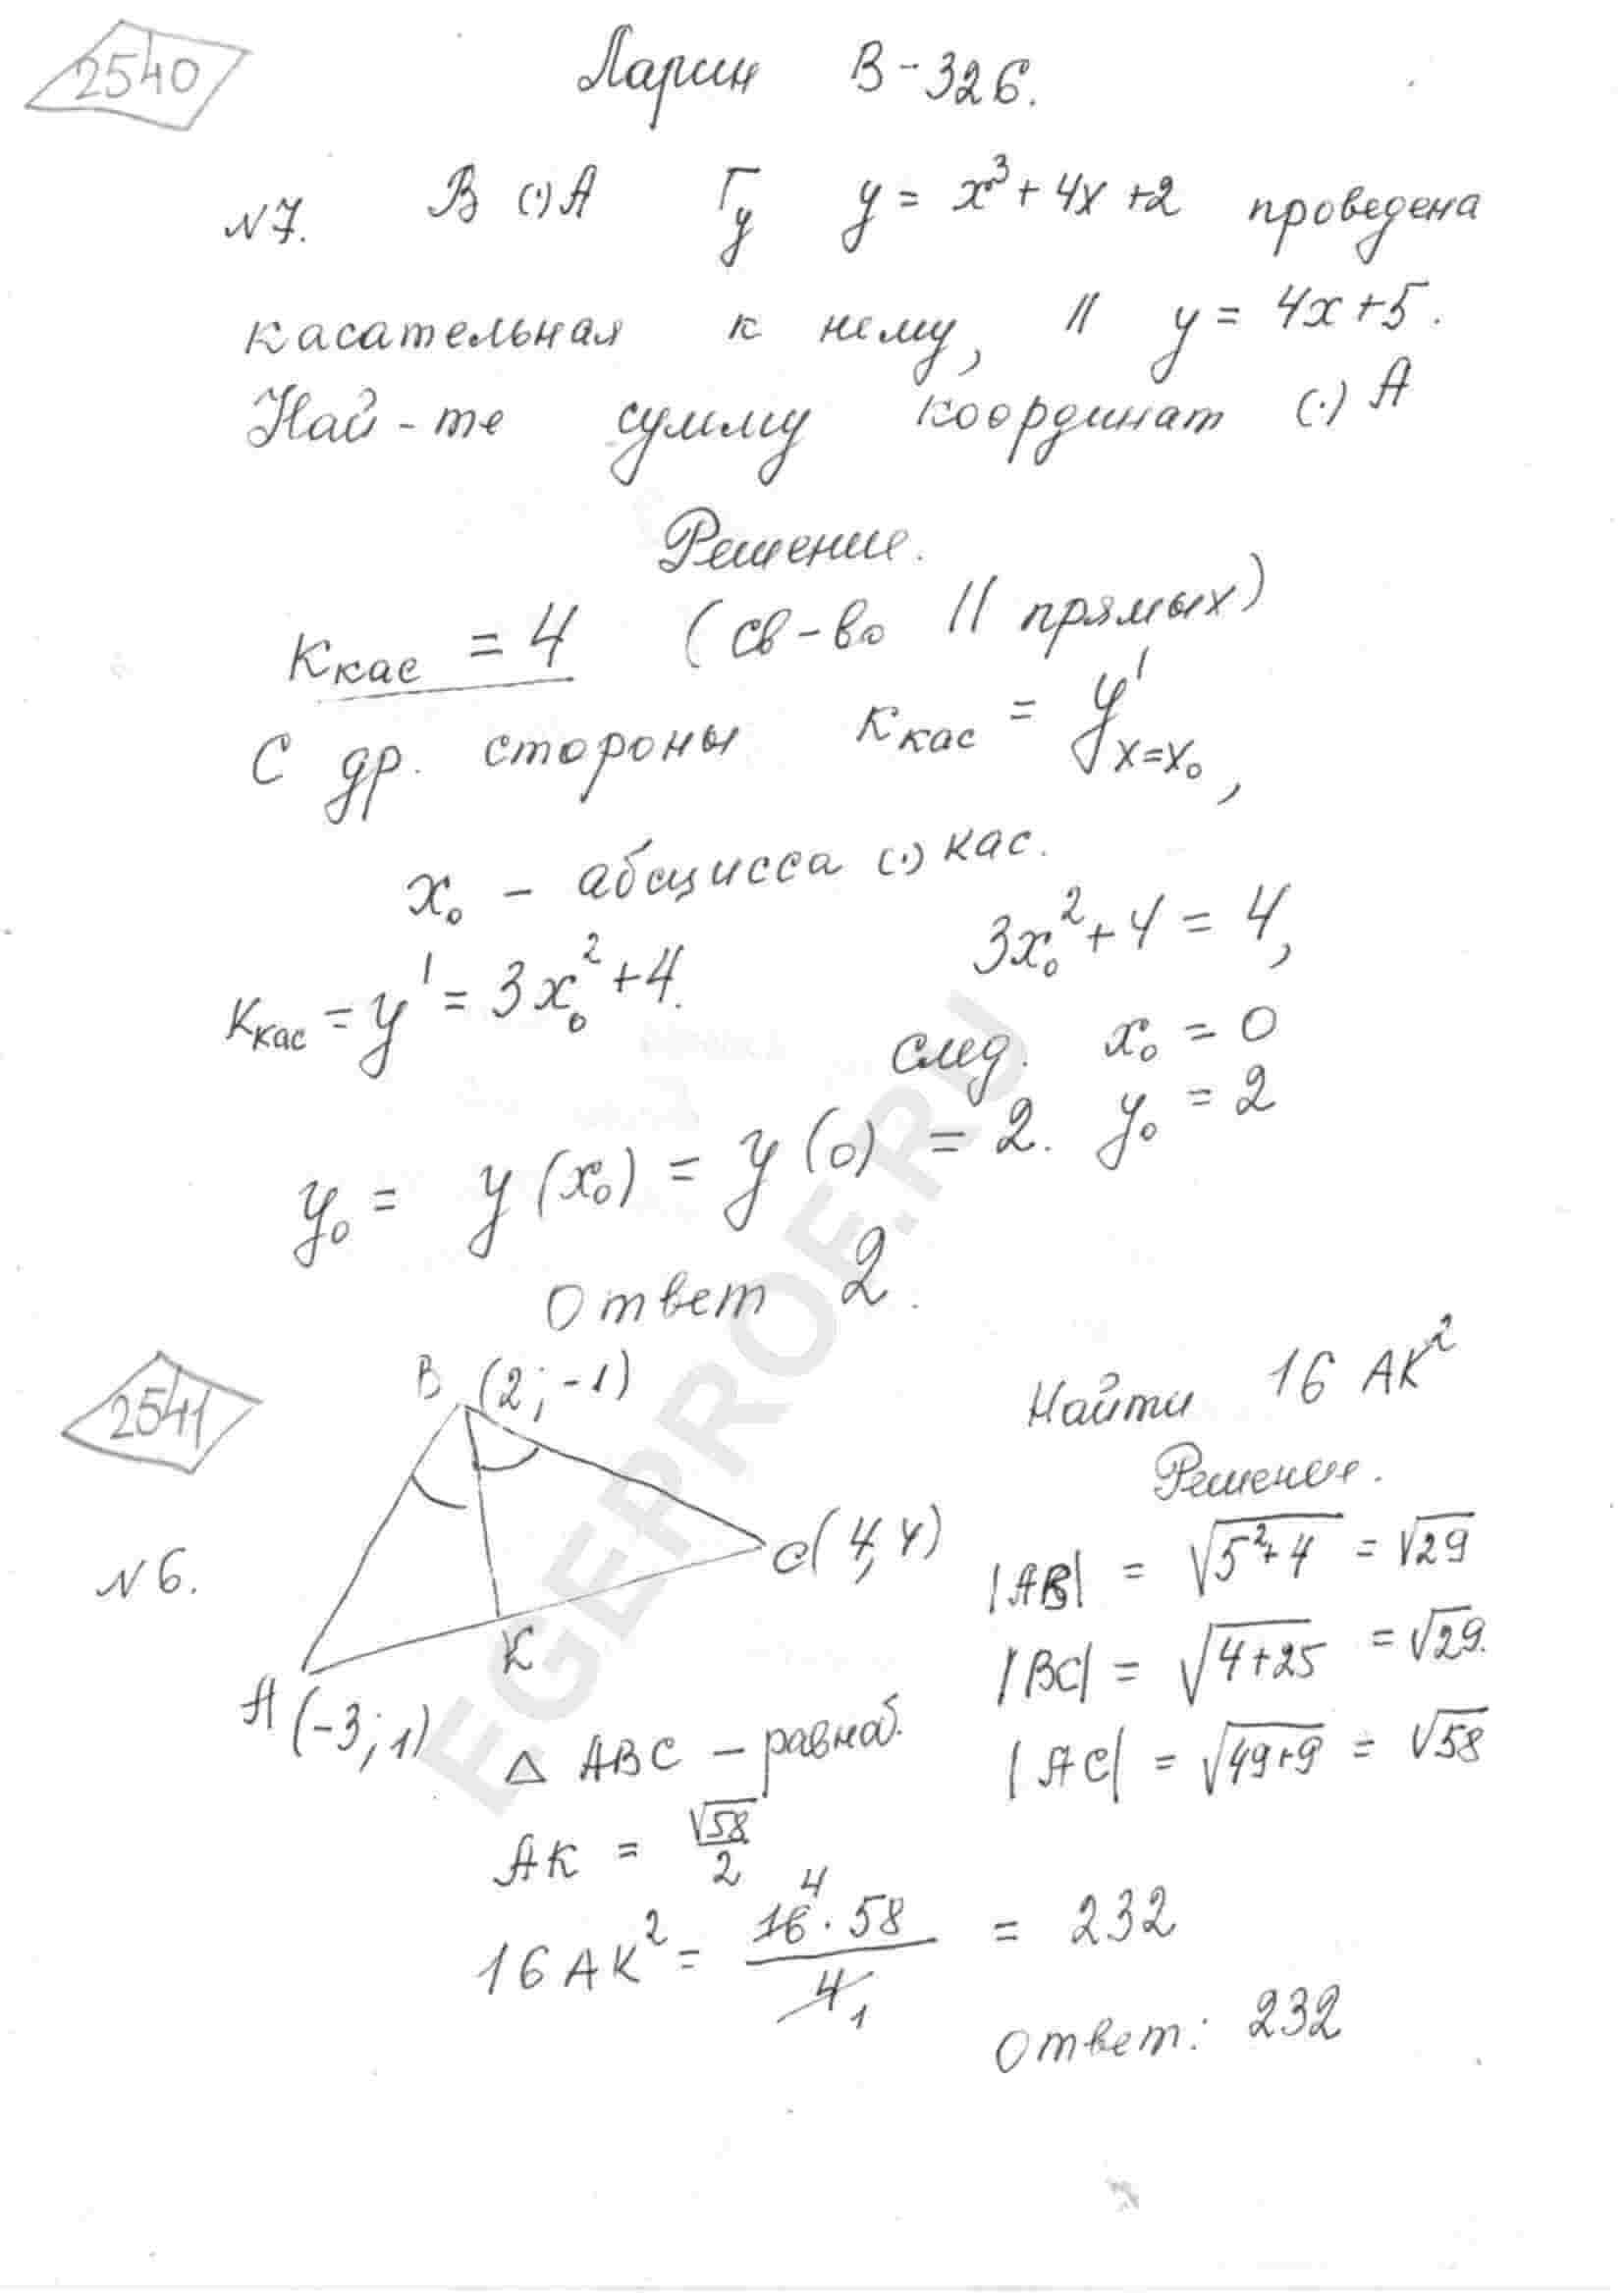 2540
Ларин В-326.
N7. В (·) А Г_y y = x³ + 4x + 2 проведена
касательная к нему, || y = 4x + 5.
Най-те сумму координат (·) А
Решение.
Kкас = 4 (св-во || прямых)
С др. стороны Kкас = y'_{x=x₀},
x₀ - абсцисса (·) кас.
Kкас = y' = 3x₀² + 4. 3x₀² + 4 = 4,
след. x₀ = 0
y₀ = y(x₀) = y(0) = 2. y₀ = 2
Ответ 2.
2541
B (2; -1)
Найти 16 AK²
Решение.
N6.
C(4, 4)
|AB| = √(5² + 4) = √29
K
|BC| = √(4 + 25) = √29.
A (-3; 1)
△ ABC - равноб.
|AC| = √(49 + 9) = √58
AK = √58/2
16 AK² = 16⁴ · 58 / 4₁ = 232
Ответ: 232
EGEPROF.RU